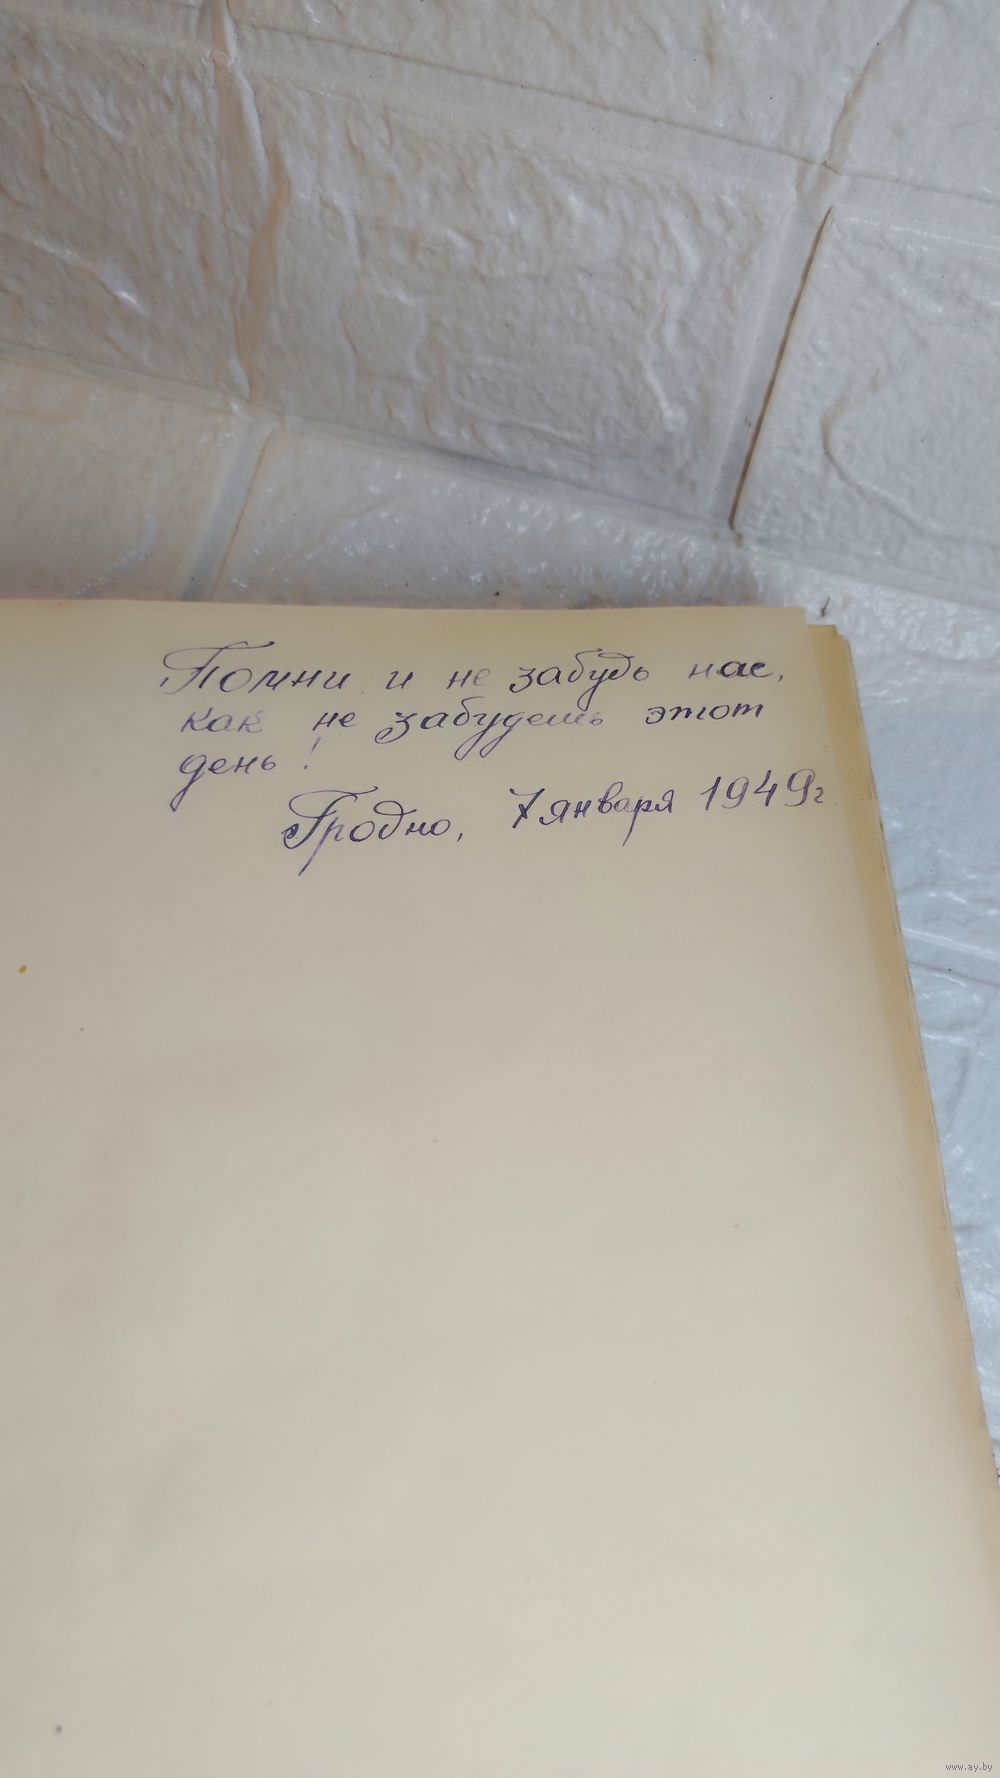 Помни и не забудь нас,
как не забудешь этот
день!
Гродно, 7 января 1949г
www.ay.by